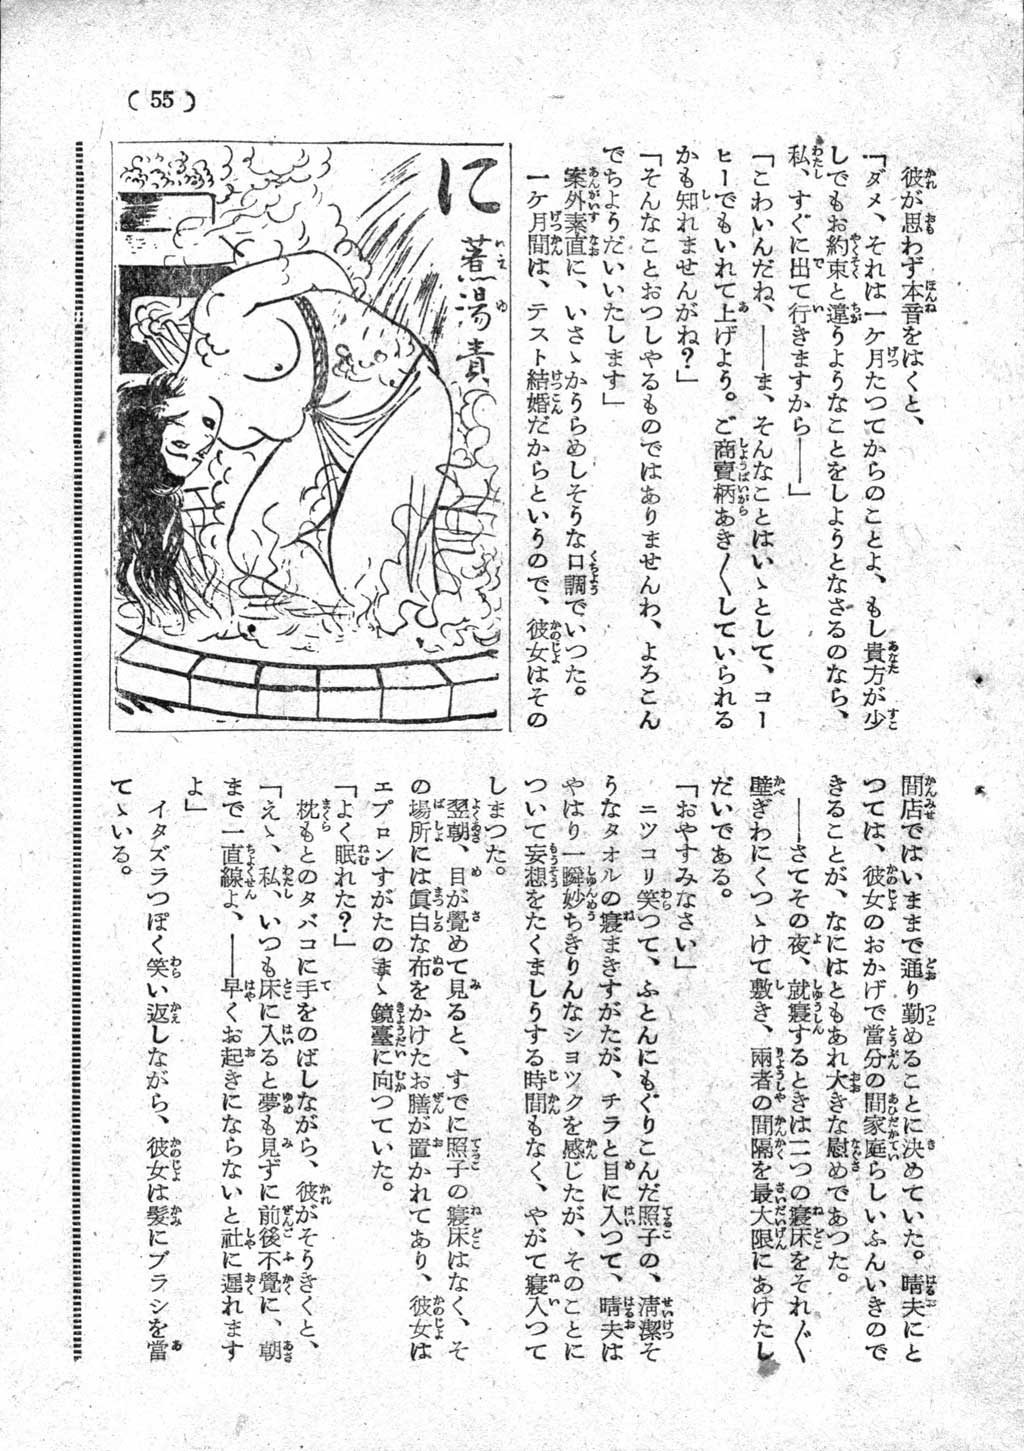 ( 55 )
彼が思わず本音をはくと、
「ダメ、それは一ケ月たつてからのことよ、もし貴方が少
しでもお約束と違うようなことをしようとなさるのなら、
私、すぐに出て行きますから――」
「こわいんだね、――ま、そんなことはいゝとして、コー
ヒーでもいれて上げよう。ご商賣柄あき〱していられる
かも知れませんがね？」
「そんなことおつしやるものではありませんわ、よろこん
でちようだいいたします」
案外素直に、いさゝかうらめしそうな口調でいつた。
一ケ月間は、テスト結婚だからというので、彼女はその
に
煮湯責
間店ではいままで通り勤めることに決めていた。晴夫にと
つては、彼女のおかげで當分の間家庭らしいふんいきので
きることが、なにはともあれ大きな慰めであつた。
――さてその夜、就寝するときは二つの寝床をそれ〲
壁ぎわにくつゝけて敷き、兩者の間隔を最大限にあけたし
だいである。
「おやすみなさい」
ニツコリ笑つて、ふとんにもぐりこんだ照子の、清潔そ
うなタオルの寝まきすがたが、チラと目に入つて、晴夫は
やはり一瞬妙ちきりんなシヨツクを感じたが、そのことに
ついて妄想をたくましうする時間もなく、やがて寝入つて
しまつた。
翌朝、目が覺めて見ると、すでに照子の寝床はなく、そ
の場所には眞白な布をかけたお膳が置かれてあり、彼女は
エプロンすがたのまゝ鏡臺に向つていた。
「よく眠れた？」
枕もとのタバコに手をのばしながら、彼がそうきくと、
「えゝ、私、いつも床に入ると夢も見ずに前後不覺に、朝
まで一直線よ、――早くお起きにならないと社に遲れます
よ」
イタズラつぽく笑い返しながら、彼女は髪にブラシを當
てゝいる。